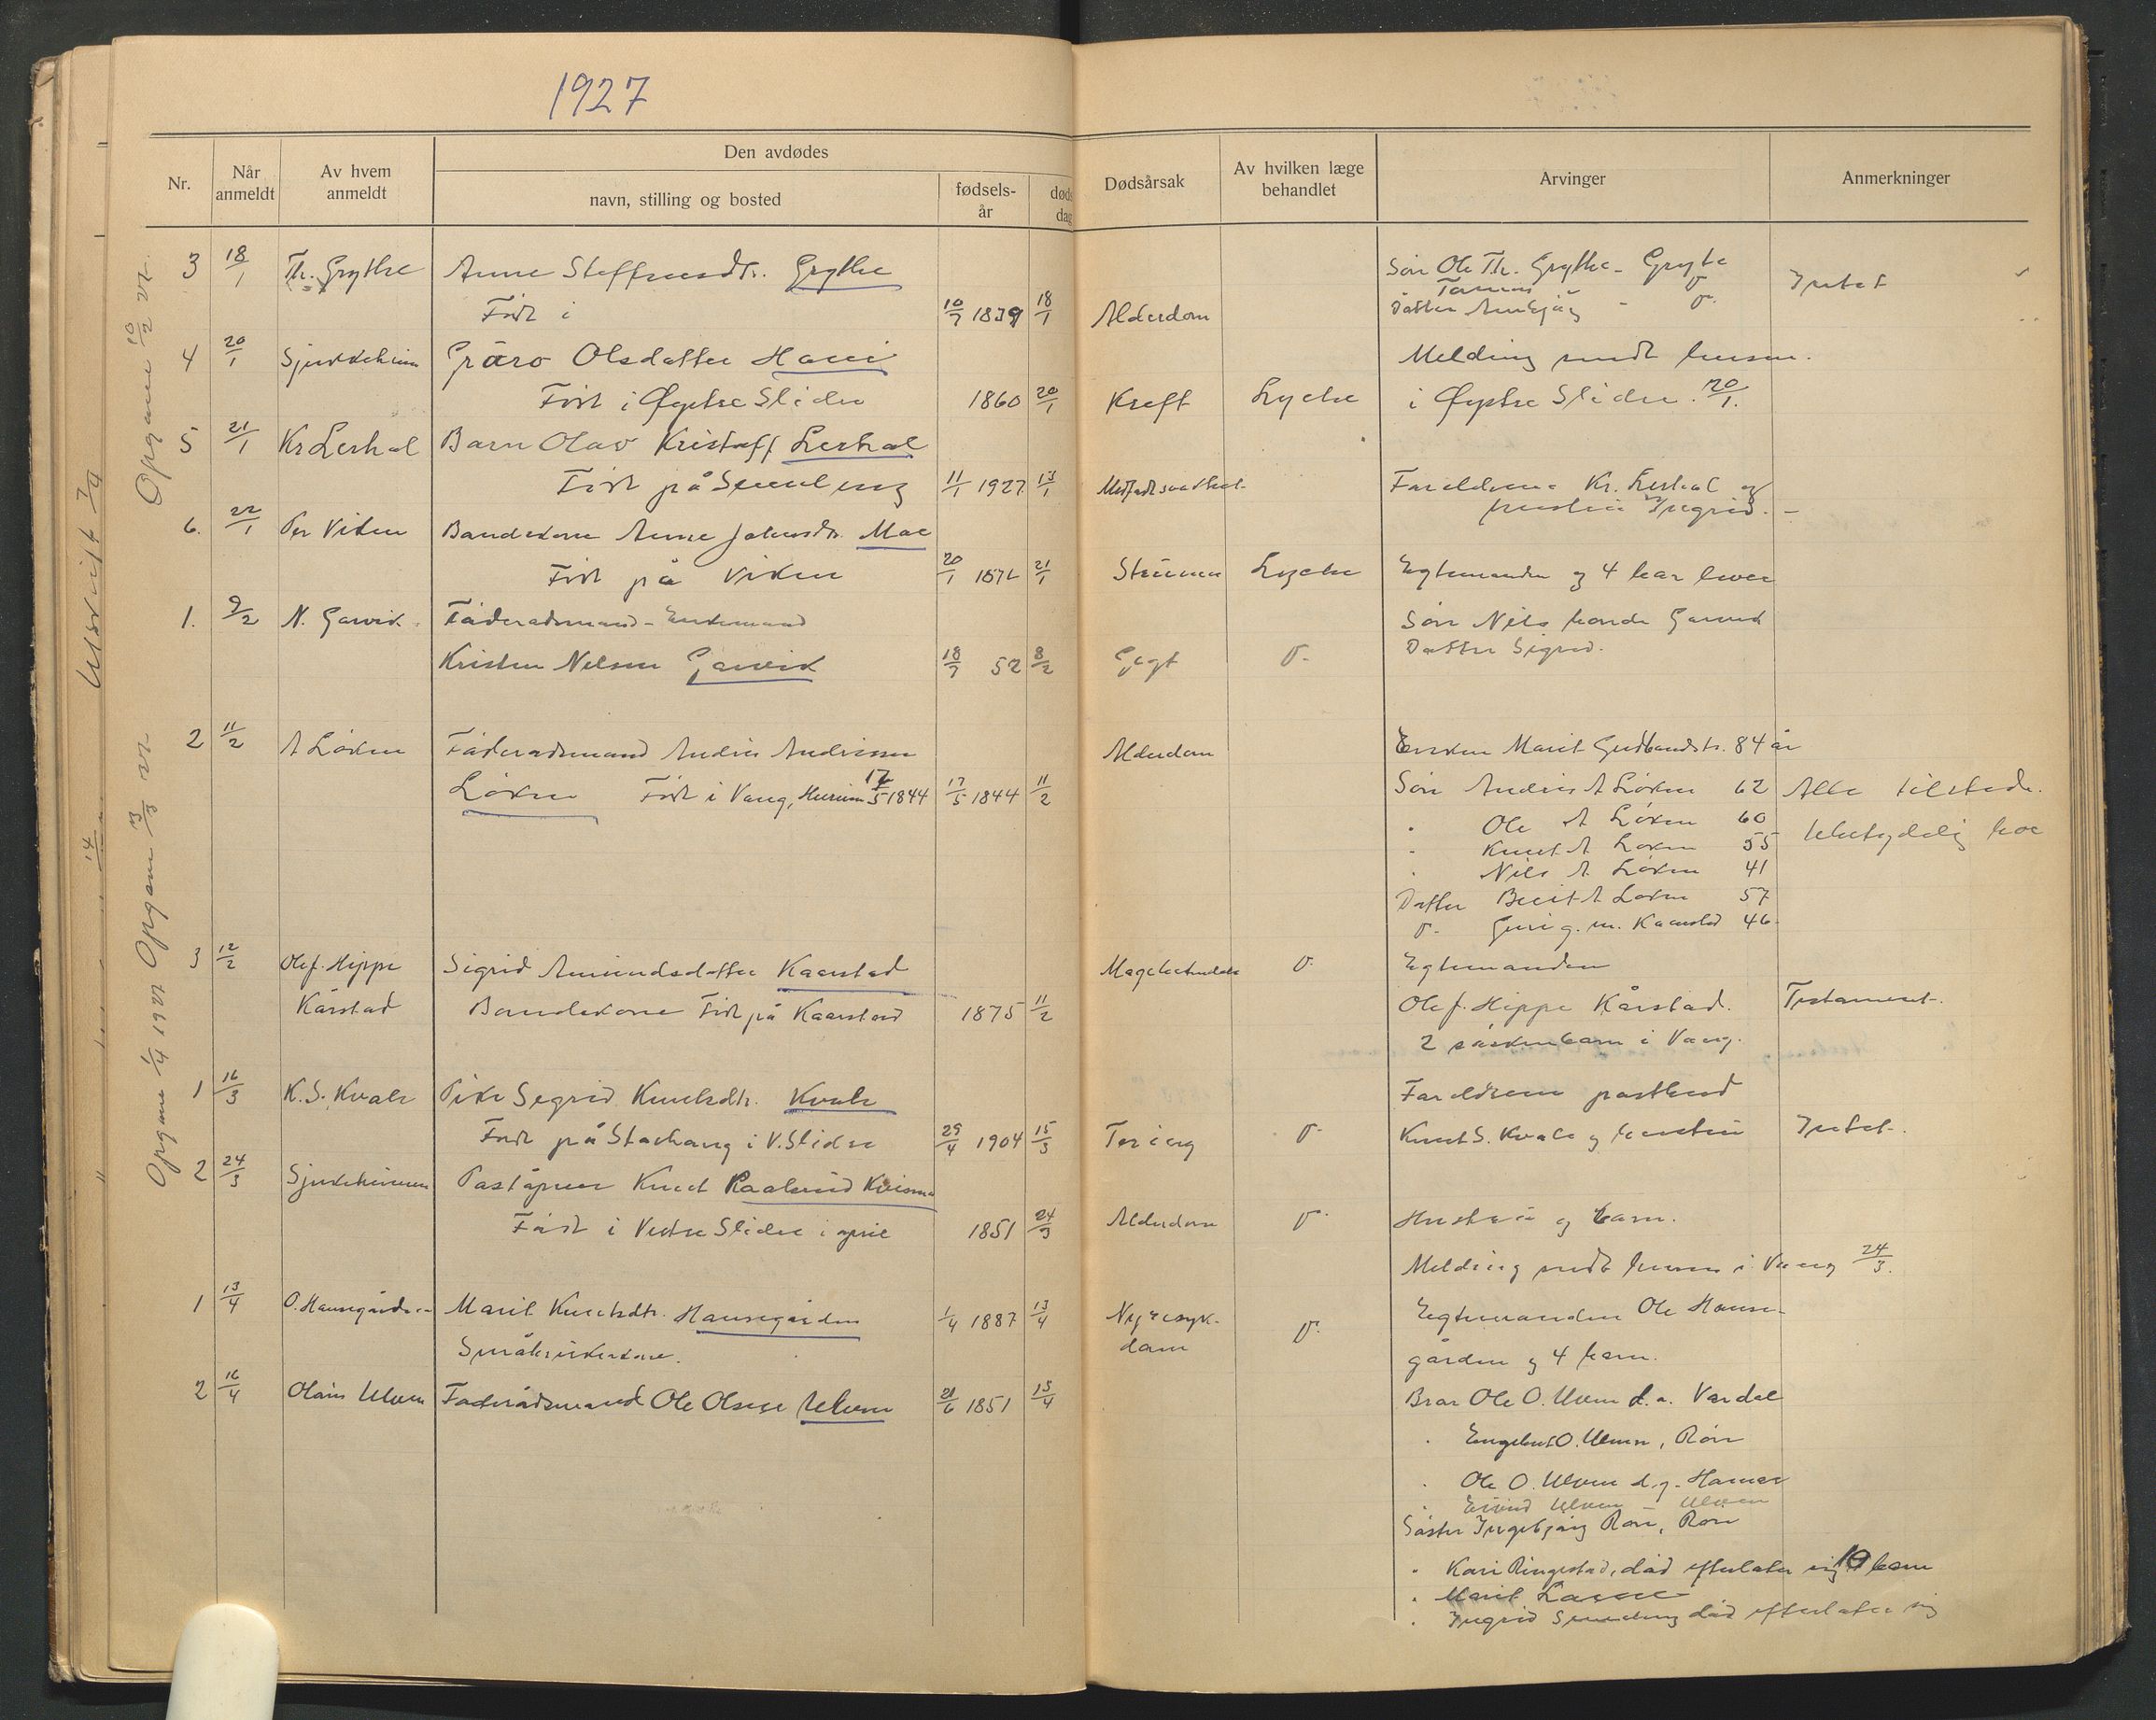 1927
Nr.
Når anmeldt
Av hvem anmeldt
Den avdødes
navn, stilling og bosted
fødsels-år
døds dag
Dødsårsak
Av hvilken læge behandlet
Arvinger
Anmerkninger
3 18/1 Th. Grythe Anne Steffensdtr. Grythe Søn Ole Th. Grythe - Grythe Intet
Født i 10/7 1839 18/1 Alderdom Datter
4 20/1 Sjukeheimen Gjøro Olsdatter Haui Melding sendt lensm.
Født i Øystre Slidre 1860 20/1 Kreft Lyche i Øystre Slidre. 20/1.
5 21/1 Kr Lerhol Barn Olav Kristoff Lerhol
Født på 11/1 1927 13/1 Medfødt svakhet Foreldrene Kr. Lerhol og
hustru Ingrid. -
6. 22/1 Per Viken Bondekone Anne Johnsdtr. Moe
Født på Viken 20/1 21/1 Lyche Egtemanden og 4 barn
1. 9/2 N. Garvik Føderådsmand - Enkemand Søn Nils Garvik
Kristen Nelsen Garvik 18/7 52 8/2 Gigt Datter Sigrid.
2 11/2 A Løken Føderådsmand Andris Andrissen Alderdom Enken Marit Gudbrandsdtr. 84 år
Løken Født i Vang, Hurum 17/5 1844 17/5 1844 11/2 Søn Andris A Løken 62 Alle tilstede.
" Ole A Løken 60 Ubetydelig bo
" Knut A Løken 55
" Nils A Løken 41
Datter Berit A Løken 57
Guri g. m. Kaarstad 46
3 12/2 Ole J. Hippe Sigrid Amundsdatter Kaarstad Egtemanden
Kårstad Bondekone Født på Kaarstad 1875 11/2 Ole J. Hippe Kårstad. Testament.
2 søskenbarn i Vang.
1 16/3 K. S. Kvale Pike Sigrid Knutsdtr. Kvale Foreldrene
Født på i V. Slidre 29/4 1904 15/3 Tæring Knut S. Kvale og hustru Intet.
2 24/3 Sjukeheimen Poståpner Knut Kvismo
Født i Vestre Slidre i april 1851 24/3 Alderdom Hustru og barn.
Melding sendt lensm i Vang 24/3.
1 13/4 O. Hausegården Marit Knutsdtr. Hausegården 1/4 1887 13/4 Nyresyk- Egtemanden Ole Hause-
Småbrukerkone. dom gården og 4 barn.
2 16/4 Olaus Ulven Føderådsmand Ole Olsen Ulven 21/6 1851 15/4 Bror Ole O. Ulven d.e. Vardal
" Engebret O. Ulven, Røn
" Ole O. Ulven d.y. Hamar
" Eivind Ulven - Ulven
Søster Ingebjørg Røn, Røn
" Kari Ringestad, død efterlater sig 10 barn
" Marit
" Ingrid død efterlater sig
Opgave 10/2 27.
Opgave 3/3 27.
Opgave 1/4 1927
Utskrift 7/4
14